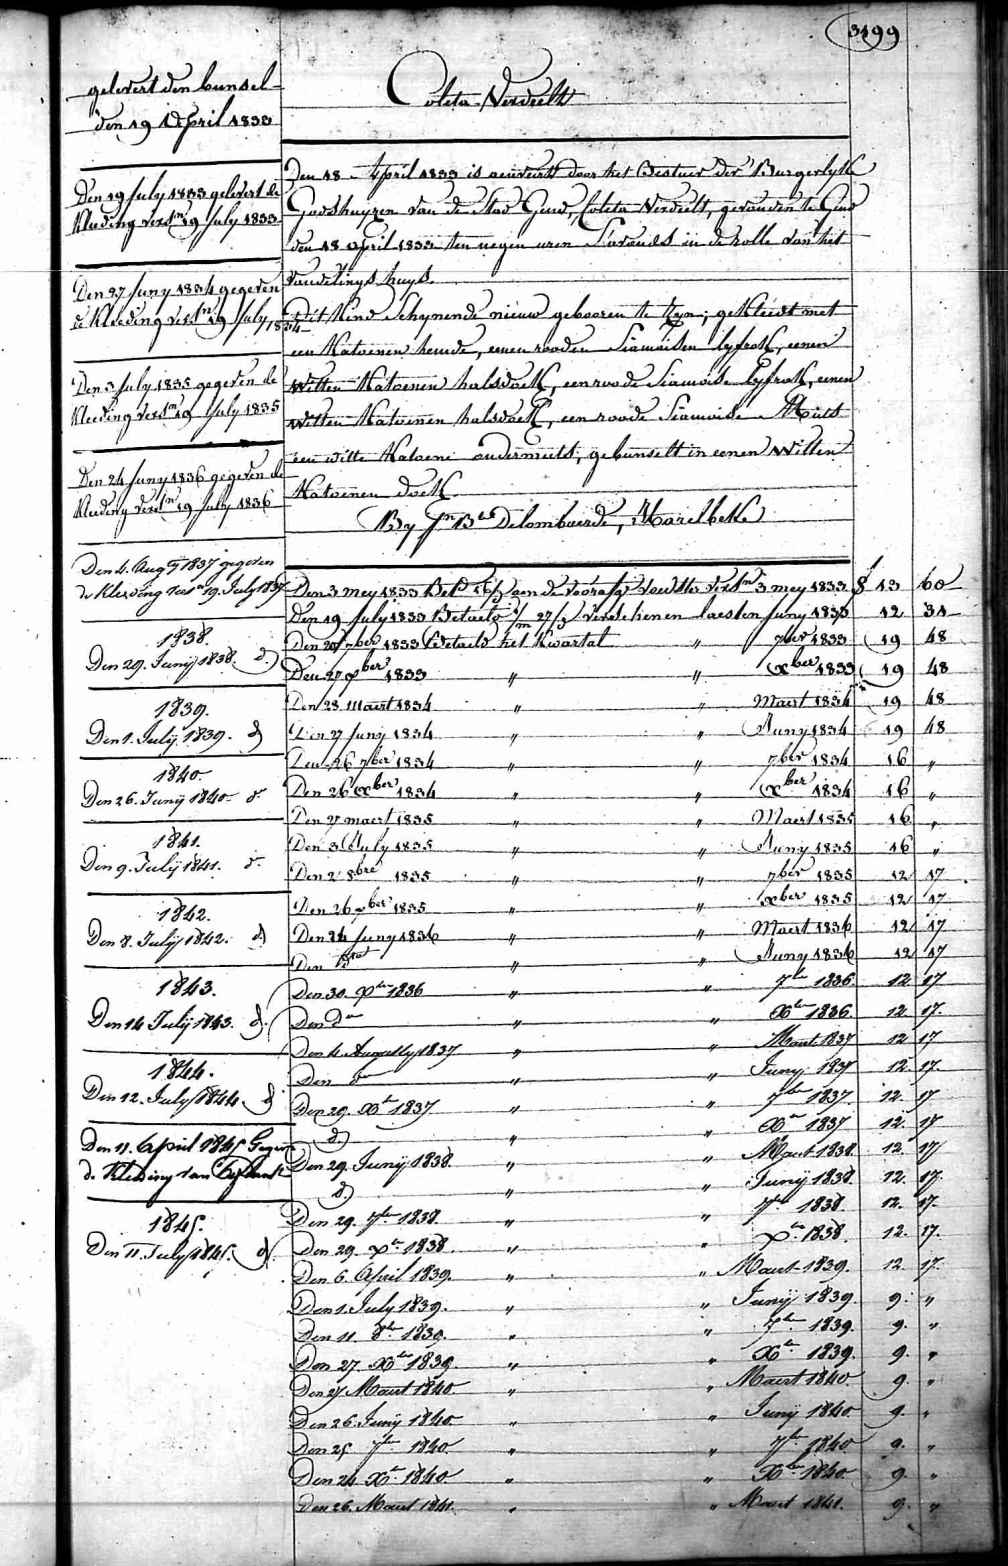 3199
Coleta Verdeelt
gelevert den bunsel
den 19 April 1833
Den 19 July 1833 gelevert de
Kleeding versn 19 July 1833
Den 27 Juny 1834 gegeven
de Kleeding versn 19 July 1834
Den 3 July 1835 gegeven de
Kleeding versn 19 July 1835
Den 24 Juny 1836 gegeven de
Kleeding versn 19 July 1836
Den 4. Augt 1837 gegeven
de Kleeding versn 19. July 1837
1838.
Den 29. Junij 1838. d)
1839.
Den 1. Julij 1839. d)
1840.
Den 26. Junij 1840. d
1841.
Den 9. Julij 1841. d.
1842.
Den 8. Julij 1842. d)
1843.
Den 14 Julij 1843. d).
1844.
Den 12. July 1844. d
Den 11. April 1845 Gegeven
d. Kleeding van
1845.
Den 11. July 1845. d).
Den 18 April 1833 is aenveirdt door het Bestuer der Burgerlyke
Godshuyzen van de Stad Gend, Coleta Verdeelt, gevonden te Gend
den 18 April 1833 ten negen uren S'avonds in de rolle van het
vondelings huys.
Dit Kind Schynende nieuw gebooren te Zyn; gekleedt met
een Katoenen hemde, eenen rooden Siamoisen lyfrok, eenen
Witten Katoenen halsdoek, een roode Siamoise lyfrok, eenen
Witten Katoenen halsdoek, een roode Siamoise Muts
een witte Katoene ondermuts, gebunselt in eenen Witten
Katoenen doek
By Jn Bte Delombaerde, Harelbeke
Den 3 mey 1833 Bet aen de voorafg voedster versn 3 mey 1833 f 13 60
Den 19 July 1833 Betaelt 27/3 verschenen laesten Juny 1833 12 31
Den 20 7ber 1833 Betaelt het Kwartal " 7ber 1833 19 48
Den 27 xber 1833 " " xber 1833 19 48
Den 28 maert 1834 " " Maert 1834 19 48
Den 27 Juny 1834 " " Juny 1834 19 48
Den 26 7ber 1834 " " 7ber 1834 16 "
Den 26 xber 1834 " " xber 1834 16 "
Den 27 maert 1835 " " Maert 1835 16 "
Den 3 July 1835 " " Juny 1835 16 "
Den 2 8bre 1835 " " 7ber 1835 12 17
Den 26 xber 1835 " " xber 1835 12 17
Den 24 Juny 1836 " " Maert 1836 12 17
Den do " " Juny 1836 12 17
Den 30. xbr 1836 " " 7br 1836. 12 17
Den do " " Xbr 1836. 12 17.
Den 4. Augusty 1837 " " Maert 1837 12 17
Den do " " Juny 1837 12 17.
Den 29. Xbr 1837 " " 7br 1837. 12. 17
d) " " Xbr 1837 12. 17
Den 29. Junij 1838. " " Maert 1838. 12. 17
d.) " " Junij 1838. 12. 17.
Den 29. 7br 1838. " " 7br 1838. 12. 17.
Den 29. xbr 1838. " " xbr 1838. 12. 17.
Den 6. April 1839. " " Maert 1839. 12. 17.
Den 1. July 1839. " " Junij 1839. 9. "
Den 11. 8br 1839. " " 7br 1839. 9. "
Den 27 Xbr 1839 " " Xbr 1839. 9. "
Den 27 Maert 1840. " " Maert 1840. 9. "
Den 26. Junij 1840 " " Junij 1840 9. "
Den 25 7br 1840 " " 7br 1840 9. "
Den 24 Xbr 1840 " " Xbr 1840 9. "
Den 26. Maert 1841. " " Maert 1841. 9. "